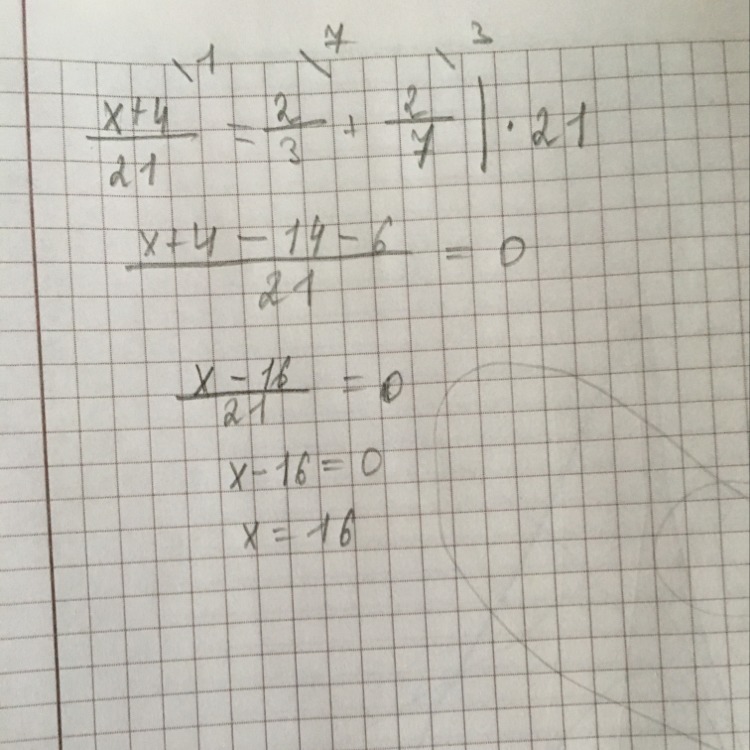 \1 \7 \3
x+4/21 = 2/3 + 2/7 | · 21
x+4-14-6/21 = 0
x-16/21 = 0
x-16=0
x=16